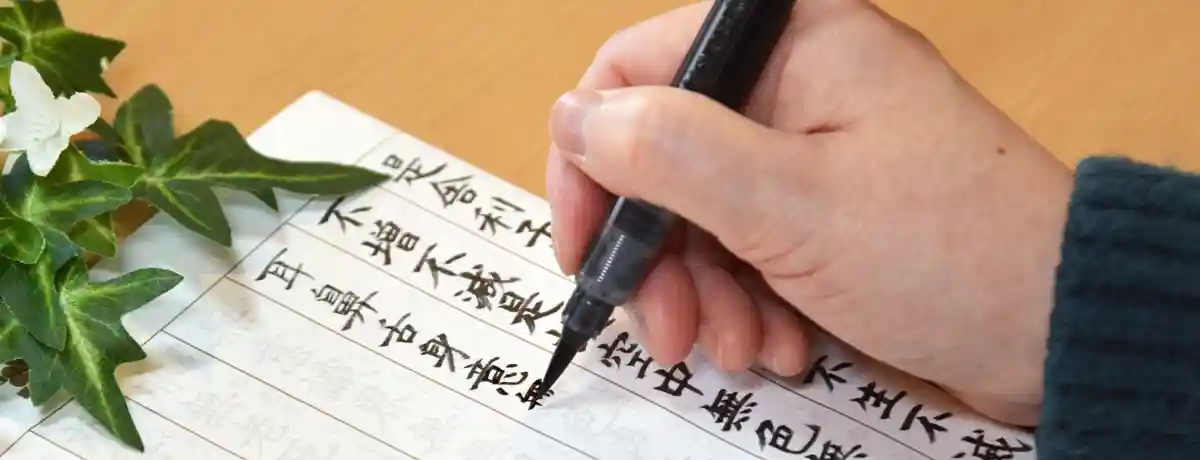 是舍利子 不生不滅
不増不減是 空中無色無
耳鼻舌身意無